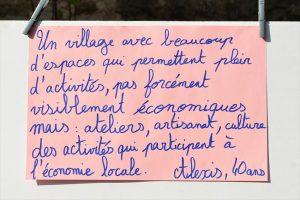 Un village avec beaucoup
d'espaces qui permettent plein
d'activités, pas forcément
visiblement économiques
mais : ateliers, artisanat, culture
des activités qui participent à
l'économie locale. Alexis, 40 ans